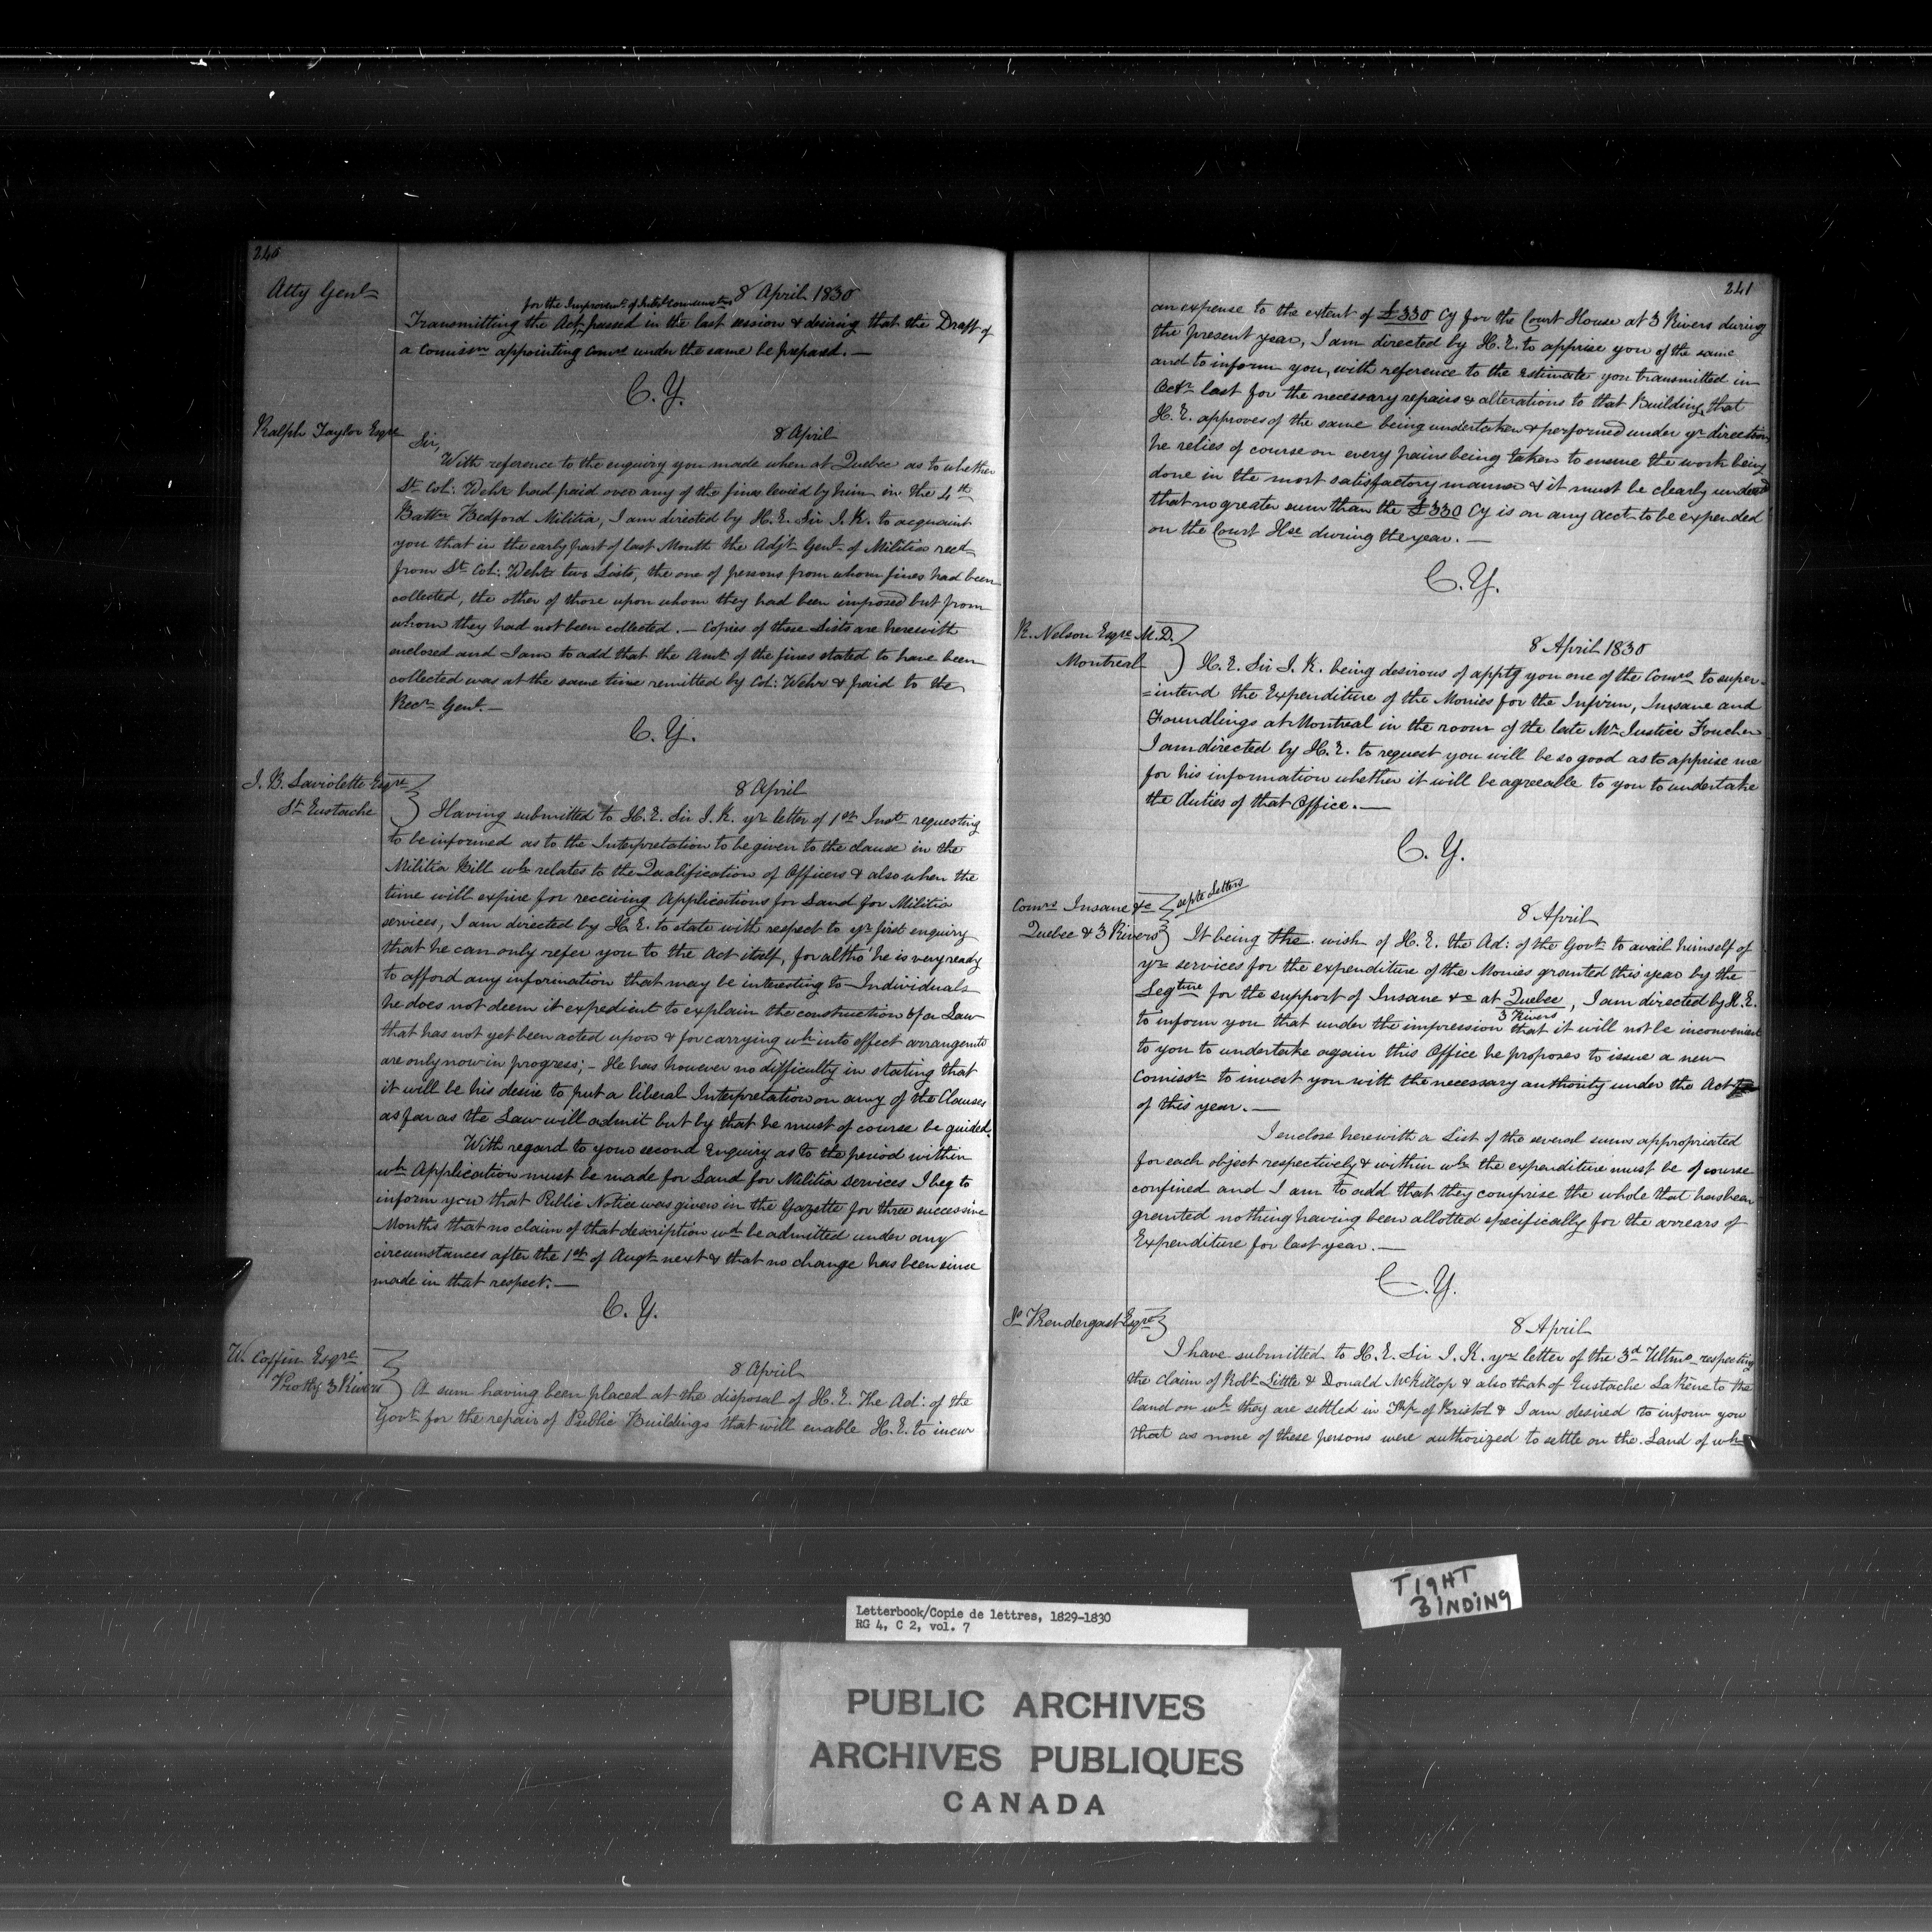 240
Atty Genl
8 April 1830
for the Improvemt. of Intl Communicatns
Transmitting the Act passed in the last session & desiring that the Draft of
a Comissn appointing Comrs under the same be prepared. —
C. Y.
Ralph Taylor Esqre
8 April
Sir,
With reference to the enquiry you made when at Quebec as to whether
Lt. Col: Wehr had paid over any of the fines levied by him in the 4th
Battn Bedford Militia, I am directed by H. E. Sir J. K. to acquaint
you that in the early part of last Month the Adjt. Genl. of Militia recd
from Lt. Col: Wehr two Lists, the one of persons from whom fines had been
collected, the other of those upon whom they had been imposed but from
whom they had not been collected. — Copies of these Lists are herewith
enclosed and I am to add that the Amt. of the fines stated to have been
collected was at the same time remitted by Col: Wehr & paid to the
Recr Genl. —
C. Y.
J. B. Laviolette Esqre
St Eustache
8 April
Having submitted to H. E. Sir J. K. yr letter of 1st Inst. requesting
to be informed as to the Interpretation to be given to the clause in the
Militia Bill wh. relates to the Qualification of Officers & also when the
time will expire for receiving Applications for Land for Militia
services, I am directed by H. E. to state with respect to yr first enquiry
that he can only refer you to the Act itself, for altho' he is very ready
to afford any information that may be interesting to Individuals
he does not deem it expedient to explain the construction of a Law
that has not yet been acted upon & for carrying wh into effect arrangemts
are only now in progress; - He has however no difficulty in stating that
it will be his desire to put a liberal Interpretation on any of the Clauses
as far as the Law will admit but by that he must of course be guided.
With regard to your second Enquiry as to the period within
wh Application must be made for Land for Militia services I beg to
inform you that Public Notice was given in the Gazette for three successive
Months that no claim of that description wd be admitted under any
circumstances after the 1st of Augt. next & that no change has been since
made in that respect. —
C. Y.
W. Coffin Esqre
Prothy 3 Rivers
8 April
A sum having been placed at the disposal of H. E. The Ad: of the
Govt. for the repair of Public Buildings that will enable H. E. to incur
241
an expense to the extent of £330 Cy for the Court House at 3 Rivers during
the present year, I am directed by H. E. to apprise you of the same
and to inform you, with reference to the Estimate you transmitted in
Octr last for the necessary repairs & alterations to that Building, that
H. E. approves of the same being undertaken & performed under yr direction
he relies of course on every pains being taken to ensure the work being
done in the most satisfactory manner & it must be clearly underd
that no greater sum than the £330 Cy is on any acct to be expended
on the Court Hse during the year. —
C. Y.
R. Nelson Esqre M. D.
Montreal
8 April 1830
H. E. Sir J. K. being desirous of apptg you one of the Comrs to super-
=intend the Expenditure of the Monies for the Infirm, Insane and
Foundlings at Montreal in the room of the late Mr Justice Foucher
I am directed by H. E. to request you will be so good as to apprise me
for his information whether it will be agreeable to you to undertake
the duties of that Office. —
C. Y.
Comrs Insane &c
Quebec & 3 Rivers
septe Letters
8 April
It being the wish of H. E. the Ad: of the Govt. to avail himself of
yr services for the expenditure of the Monies granted this year by the
Legture for the support of Insane &c at Quebec, I am directed by H. E.
3 Rivers
to inform you that under the impression that it will not be inconvenient
to you to undertake again this Office he proposes to issue a new
Comissn to invest you with the necessary authority under the Act
of this year. —
I enclose herewith a List of the several sums appropriated
for each object respectively & within wh. the expenditure must be of course
confined and I am to add that they comprise the whole that has been
granted nothing having been allotted specifically for the arrears of
Expenditure for last year. —
C. Y.
Js Prendergast Esqre
8 April
I have submitted to H. E. Sir J. K. yr letter of the 3d Ultmo respecting
the claim of Robt. Little & Donald McKillop & also that of Eustache LaRène to the
land on wh. they are settled in Tnp. of Bristol & I am desired to inform you
that as none of these persons were authorized to settle on the Land of wh
TIGHT
BINDING
Letterbook/Copie de lettres, 1829-1830
RG 4, C 2, vol. 7
PUBLIC ARCHIVES
ARCHIVES PUBLIQUES
CANADA